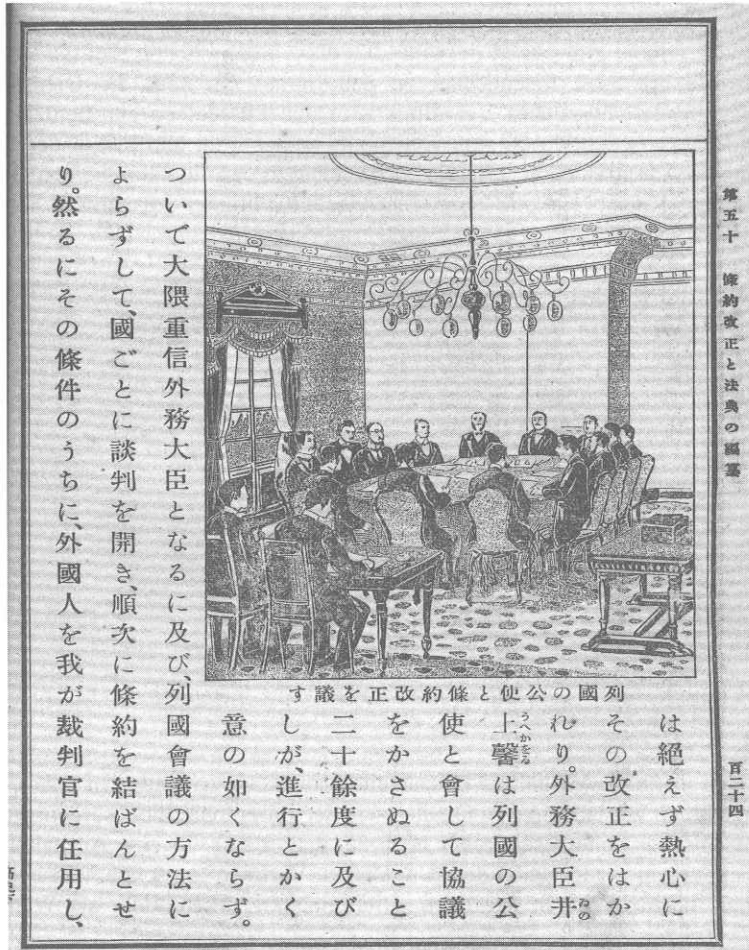 第五十 條約改正と法典の編纂
百二十四
は絶えず熱心に
その改正をはか
れり。外務大臣井
上馨は列國の公
使と會して協議
をかさぬること
二十餘度に及び
しが、進行とかく
意の如くならず。
列國の公使と條約改正を議す
ついで大隈重信外務大臣となるに及び、列國會議の方法に
よらずして、國ごとに談判を開き、順次に條約を結ばんとせ
り。然るにその條件のうちに、外國人を我が裁判官に任用し、